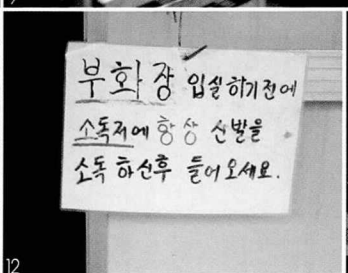 부화장 입실하기전에
소독저에 항상 신발을
소독 하신후 들어오세요.
12